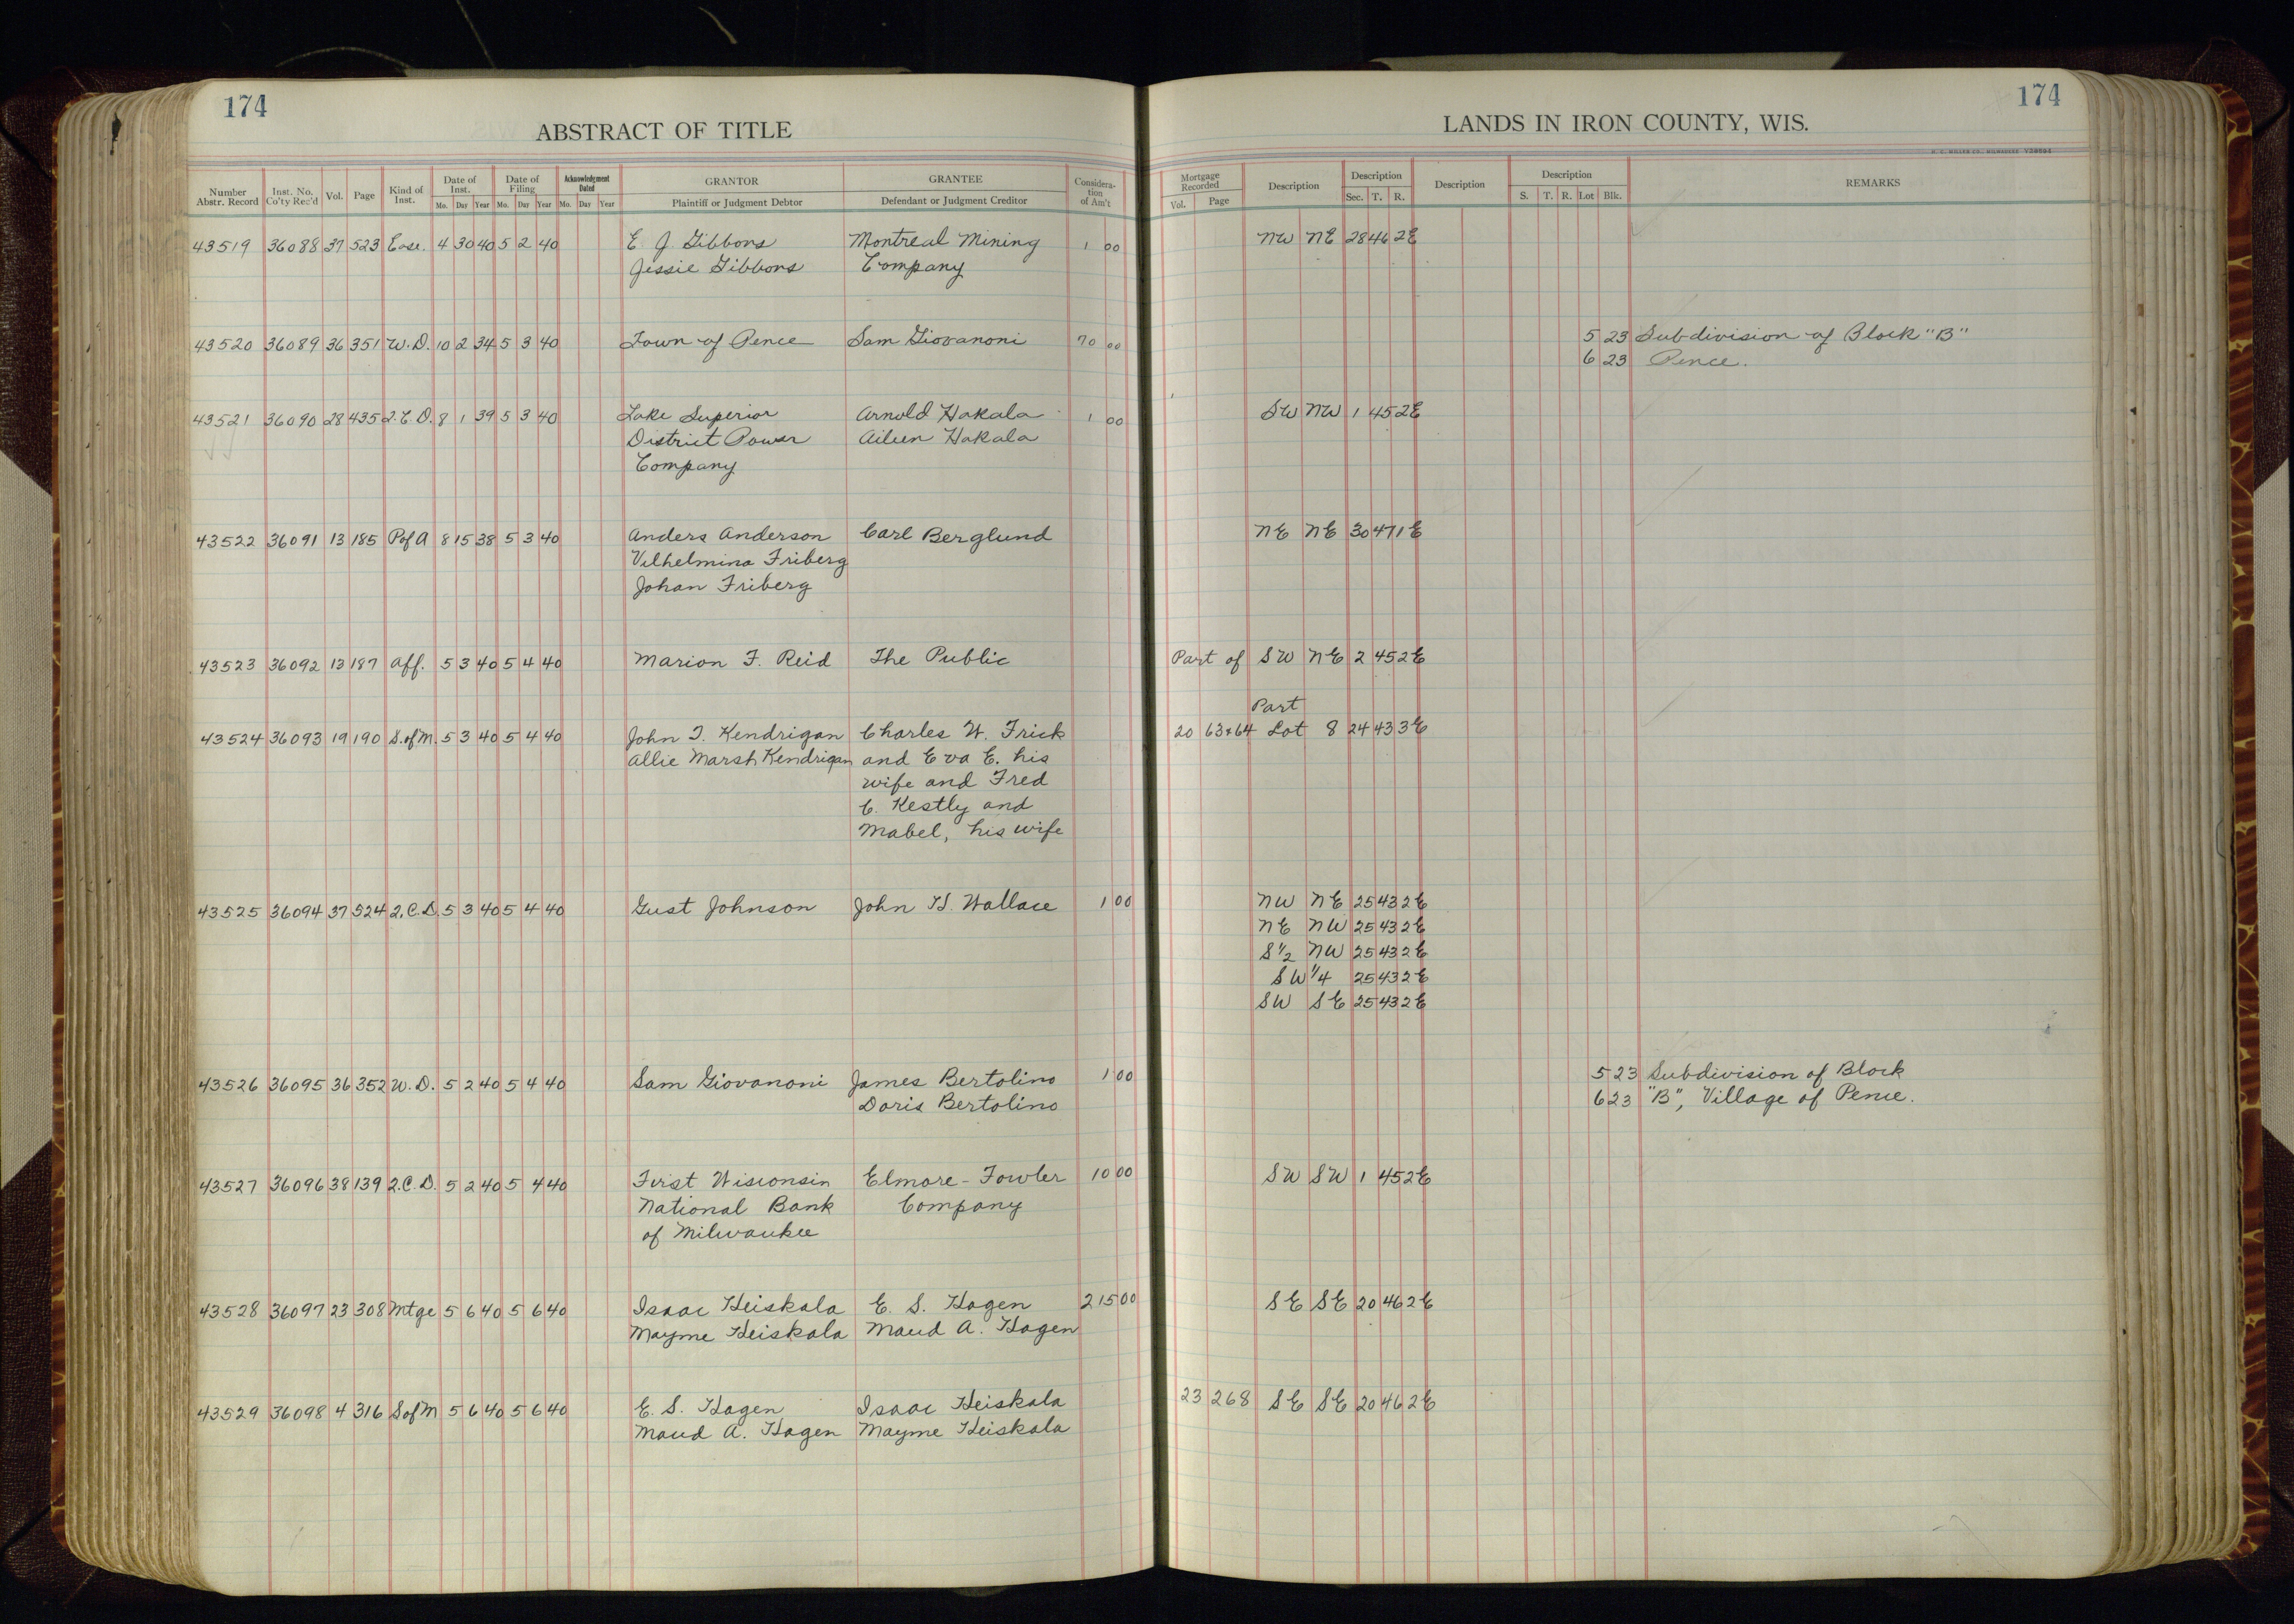 174
ABSTRACT OF TITLE
Number Abstr. Record | Inst. No. Co'ty Rec'd | Vol. | Page | Kind of Inst. | Date of Inst. Mo. Day Year | Date of Filing Mo. Day Year | Acknowledgment Dated Mo. Day Year | GRANTOR Plaintiff or Judgment Debtor | GRANTEE Defendant or Judgment Creditor | Consideration of Am't
174
LANDS IN IRON COUNTY, WIS.
Mortgage Recorded Vol. Page | Description | Description Sec. T. R. | Description | Description S. T. R. Lot Blk. | REMARKS
43519 36088 37 523 Ease. 4 30 40 5 2 40 E. J. Gibbons Montreal Mining 1 00 NW NE 28 46 2E
Jessie Gibbons Company
43520 36089 36 351 W.D. 10 2 34 5 3 40 Town of Pence Sam Giovanoni 70 00 5 23 Subdivision of Block "B"
6 23 Pence.
43521 36090 28 435 2.C.D. 8 1 39 5 3 40 Lake Superior Arnold Hakala 1 00 SW NW 1 45 2E
District Power Aileen Hakala
Company
43522 36091 13 185 P of A 8 15 38 5 3 40 Anders Anderson Carl Berglund NE NE 30 47 1E
Vilhelmina Friberg
Johan Friberg
43523 36092 13 187 Aff. 5 3 40 5 4 40 Marion F. Reid The Public Part of SW NE 2 45 2E
Part
43524 36093 19 190 S. of M. 5 3 40 5 4 40 John T. Kendrigan Charles W. Frick 20 63+64 Lot 8 24 43 3E
Allie Marsh Kendrigan and Eva E. his
wife and Fred
C. Kestly and
Mabel, his wife
43525 36094 37 524 2.C.D. 5 3 40 5 4 40 Gust Johnson John H. Wallace 1 00 NW NE 25 43 2E
NE NW 25 43 2E
S 1/2 NW 25 43 2E
SW 1/4 25 43 2E
SW SE 25 43 2E
43526 36095 36 352 W.D. 5 2 40 5 4 40 Sam Giovanoni James Bertolino 1 00 5 23 Subdivision of Block
Doris Bertolino 6 23 "B", Village of Pence.
43527 36096 38 139 2.C.D. 5 2 40 5 4 40 First Wisconsin Elmore-Fowler 10 00 SW SW 1 45 2E
National Bank Company
of Milwaukee
43528 36097 23 308 Mtge 5 6 40 5 6 40 Isaac Heiskala E. S. Hagen 215 00 SE SE 20 46 2E
Mayme Heiskala Maud A. Hagen
43529 36098 4 316 S of M 5 6 40 5 6 40 E. S. Hagen Isaac Heiskala 23 268 SE SE 20 46 2E
Maud A. Hagen Mayme Heiskala